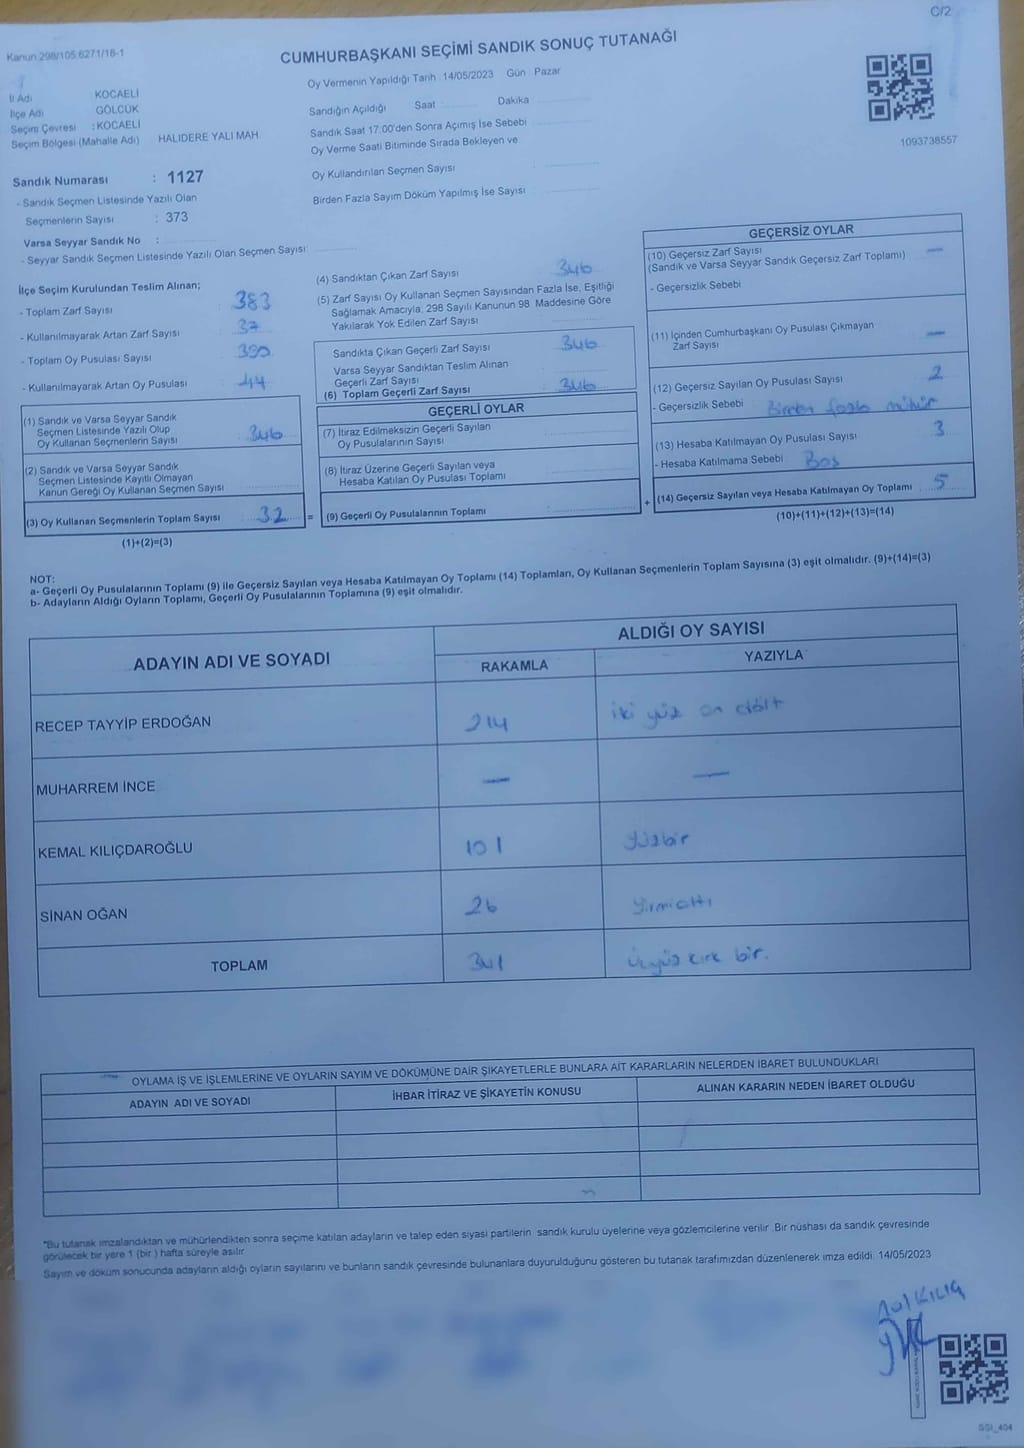 C/2
Kanun 298/105 6271/18-1
CUMHURBAŞKANI SEÇİMİ SANDIK SONUÇ TUTANAĞI
Oy Vermenin Yapıldığı Tarih 14/05/2023 Gün Pazar
İl Adı KOCAELİ
İlçe Adı GÖLCÜK
Seçim Çevresi : KOCAELİ
Seçim Bölgesi (Mahalle Adı) HALIDERE YALI MAH.
Sandığın Açıldığı Saat : Dakika
Sandık Saat 17.00'den Sonra Açımış İse Sebebi
Oy Verme Saati Bitiminde Sırada Bekleyen ve
Oy Kullandırılan Seçmen Sayısı
Birden Fazla Sayım Döküm Yapılmış İse Sayısı
1093738557
Sandık Numarası : 1127
- Sandık Seçmen Listesinde Yazılı Olan
Seçmenlerin Sayısı : 373
Varsa Seyyar Sandık No :
- Seyyar Sandık Seçmen Listesinde Yazılı Olan Seçmen Sayısı:
İlçe Seçim Kurulundan Teslim Alınan;
- Toplam Zarf Sayısı 383
- Kullanılmayarak Artan Zarf Sayısı 37
- Toplam Oy Pusulası Sayısı 390
- Kullanılmayarak Artan Oy Pusulası 44
(1) Sandık ve Varsa Seyyar Sandık
Seçmen Listesinde Yazılı Olup
Oy Kullanan Seçmenlerin Sayısı 346
(2) Sandık ve Varsa Seyyar Sandık
Seçmen Listesinde Kayıtlı Olmayan
Kanun Gereği Oy Kullanan Seçmen Sayısı
(3) Oy Kullanan Seçmenlerin Toplam Sayısı : 32
(1)+(2)=(3)
(4) Sandıktan Çıkan Zarf Sayısı 346
(5) Zarf Sayısı Oy Kullanan Seçmen Sayısından Fazla İse, Eşitliği
Sağlamak Amacıyla, 298 Sayılı Kanunun 98 Maddesine Göre
Yakılarak Yok Edilen Zarf Sayısı
Sandıkta Çıkan Geçerli Zarf Sayısı 346
Varsa Seyyar Sandıktan Teslim Alınan
Geçerli Zarf Sayısı
(6) Toplam Geçerli Zarf Sayısı 346
GEÇERLİ OYLAR
(7) İtiraz Edilmeksizin Geçerli Sayılan
Oy Pusulalarının Sayısı
(8) İtiraz Üzerine Geçerli Sayılan veya
Hesaba Katılan Oy Pusulası Toplamı
= (9) Geçerli Oy Pusulalarının Toplamı :
GEÇERSİZ OYLAR
(10) Geçersiz Zarf Sayısı —
(Sandık ve Varsa Seyyar Sandık Geçersiz Zarf Toplamı)
- Geçersizlik Sebebi
(11) İçinden Cumhurbaşkanı Oy Pusulası Çıkmayan —
Zarf Sayısı
(12) Geçersiz Sayılan Oy Pusulası Sayısı 2
- Geçersizlik Sebebi Birden fazla mühür
(13) Hesaba Katılmayan Oy Pusulası Sayısı 3
- Hesaba Katılmama Sebebi Boş
+ (14) Geçersiz Sayılan veya Hesaba Katılmayan Oy Toplamı 5
(10)+(11)+(12)+(13)=(14)
NOT:
a- Geçerli Oy Pusulalarının Toplamı (9) ile Geçersiz Sayılan veya Hesaba Katılmayan Oy Toplamı (14) Toplamları, Oy Kullanan Seçmenlerin Toplam Sayısına (3) eşit olmalıdır. (9)+(14)=(3)
b- Adayların Aldığı Oyların Toplamı, Geçerli Oy Pusulalarının Toplamına (9) eşit olmalıdır.
ADAYIN ADI VE SOYADI ALDIĞI OY SAYISI
RAKAMLA YAZIYLA
RECEP TAYYİP ERDOĞAN 214 iki yüz on dört
MUHARREM İNCE — —
KEMAL KILIÇDAROĞLU 101 Yüzbir
SİNAN OĞAN 26 Yirmialtı
TOPLAM 341 Üçyüz kırk bir.
OYLAMA İŞ VE İŞLEMLERİNE VE OYLARIN SAYIM VE DÖKÜMÜNE DAİR ŞİKAYETLERLE BUNLARA AİT KARARLARIN NELERDEN İBARET BULUNDUKLARI
ADAYIN ADI VE SOYADI İHBAR İTİRAZ VE ŞİKAYETİN KONUSU ALINAN KARARIN NEDEN İBARET OLDUĞU
*Bu tutanak imzalandıktan ve mühürlendikten sonra seçime katılan adayların ve talep eden siyasi partilerin sandık kurulu üyelerine veya gözlemcilerine verilir .Bir nüshası da sandık çevresinde
görülecek bir yere 1 (bir ) hafta süreyle asılır
Sayım ve döküm sonucunda adayların aldığı oyların sayılarını ve bunların sandık çevresinde bulunanlara duyurulduğunu gösteren bu tutanak tarafımızdan düzenlenerek imza edildi. 14/05/2023
KILIÇ
SSI_404